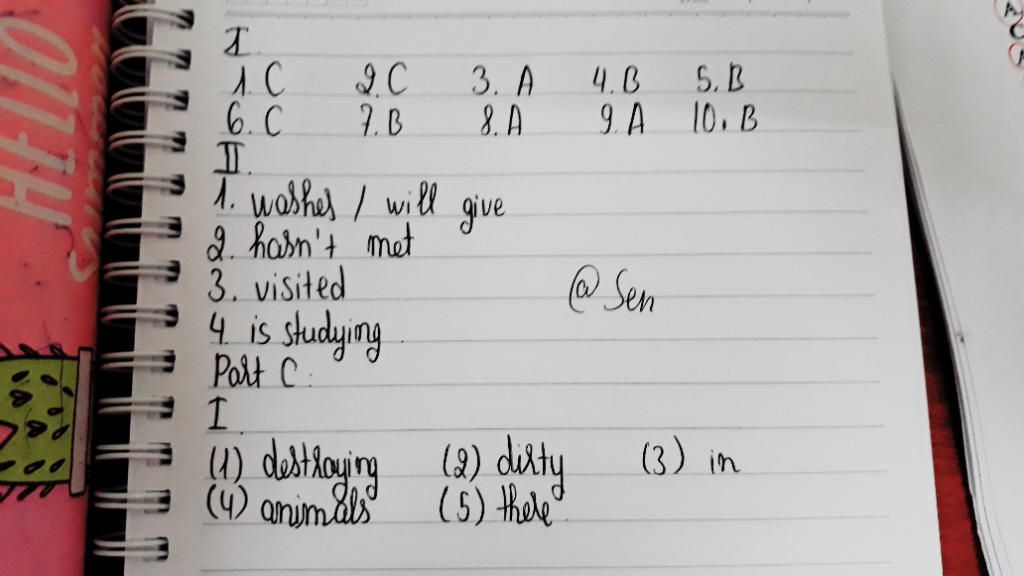 HELLO
I.
1. C 2. C 3. A 4. B 5. B
6. C 7. B 8. A 9. A 10. B
II.
1. washes / will give
2. hasn't met
3. visited
@ Sen
4. is studying.
Part C:
I.
(1) destroying (2) dirty (3) in
(4) animals (5) there.